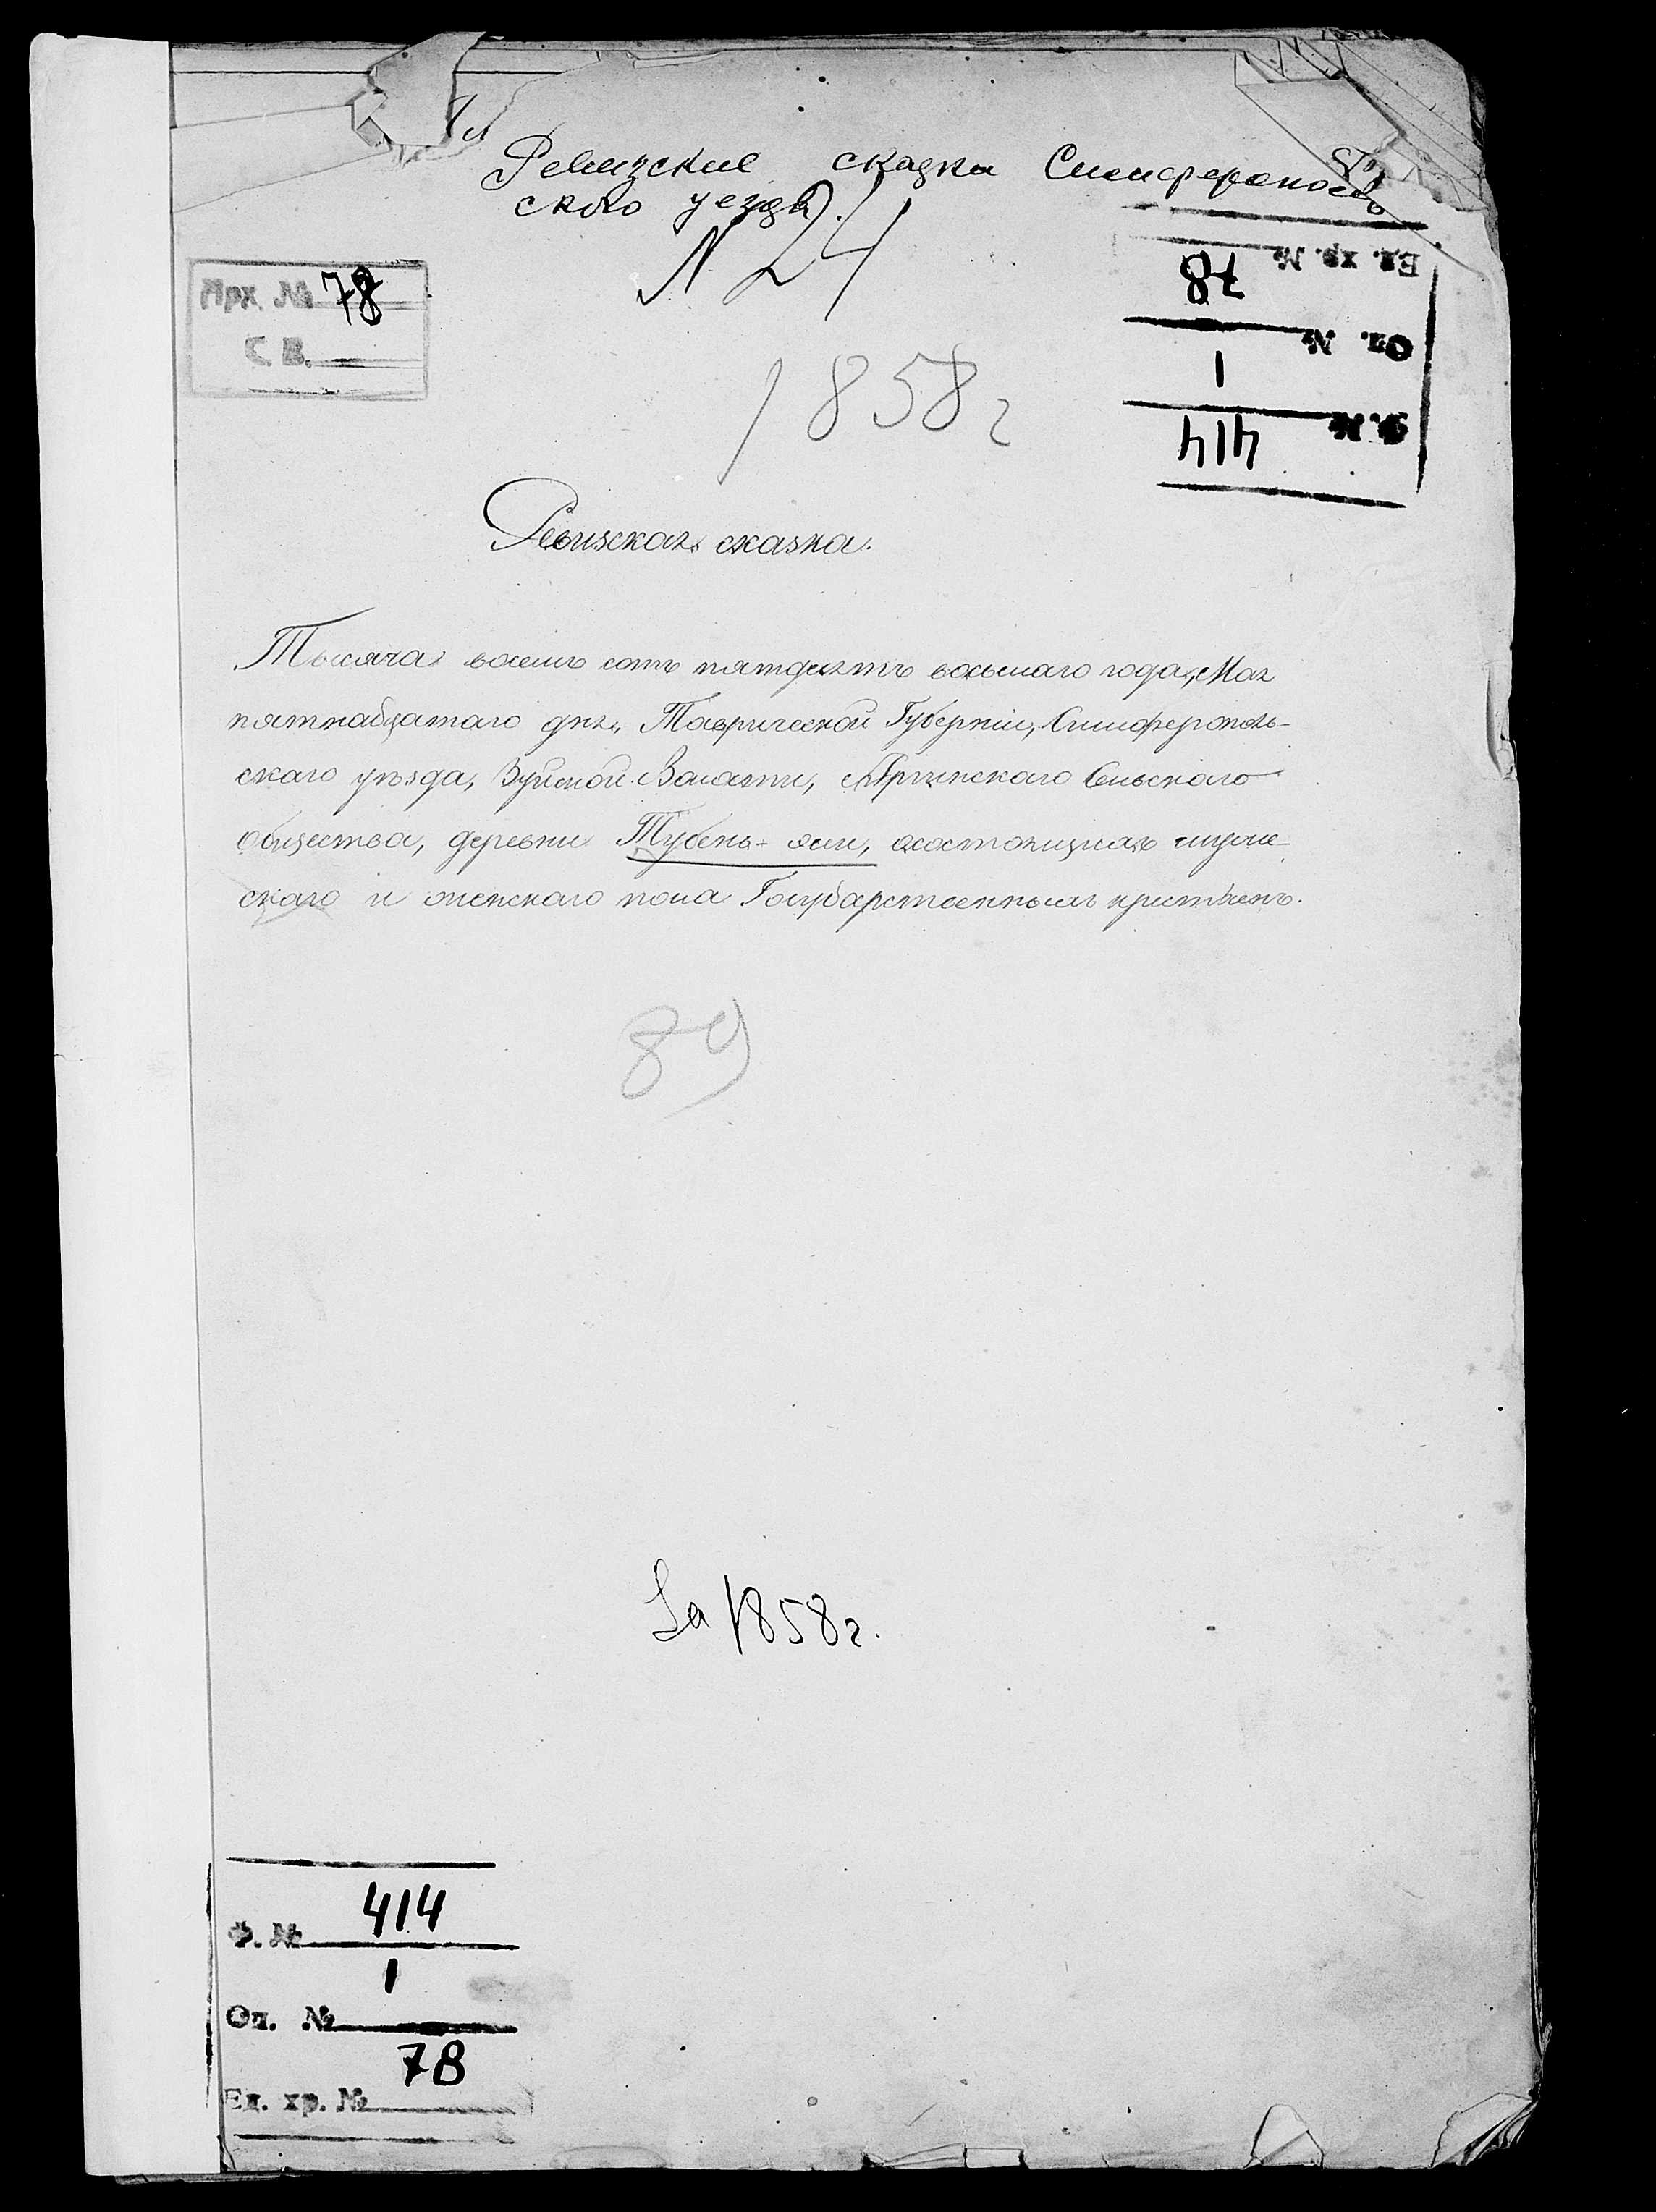 Ревизские сказки Симферополь
ского уезда.
N 24
Арх. № 78
С. В.
Ед. хр. № 78
Оп. № 1
Ф. № 414
1858 г
Ревизская сказка.
Тысяча восемь сотъ пятдесятъ восьмаго года, Мая
пятнадцатаго дня, Таврической Губерніи, Симферополь-
скаго уѣзда, Зуйской Волости, Аргинскаго Сельскаго
общества, деревни Тубень-эли, о состоящихъ муже-
скаго и женскаго пола Государственныхъ крестьянъ.
89
За 1858 г.
Ф. № 414
Оп. № 1
Ед. хр. № 78